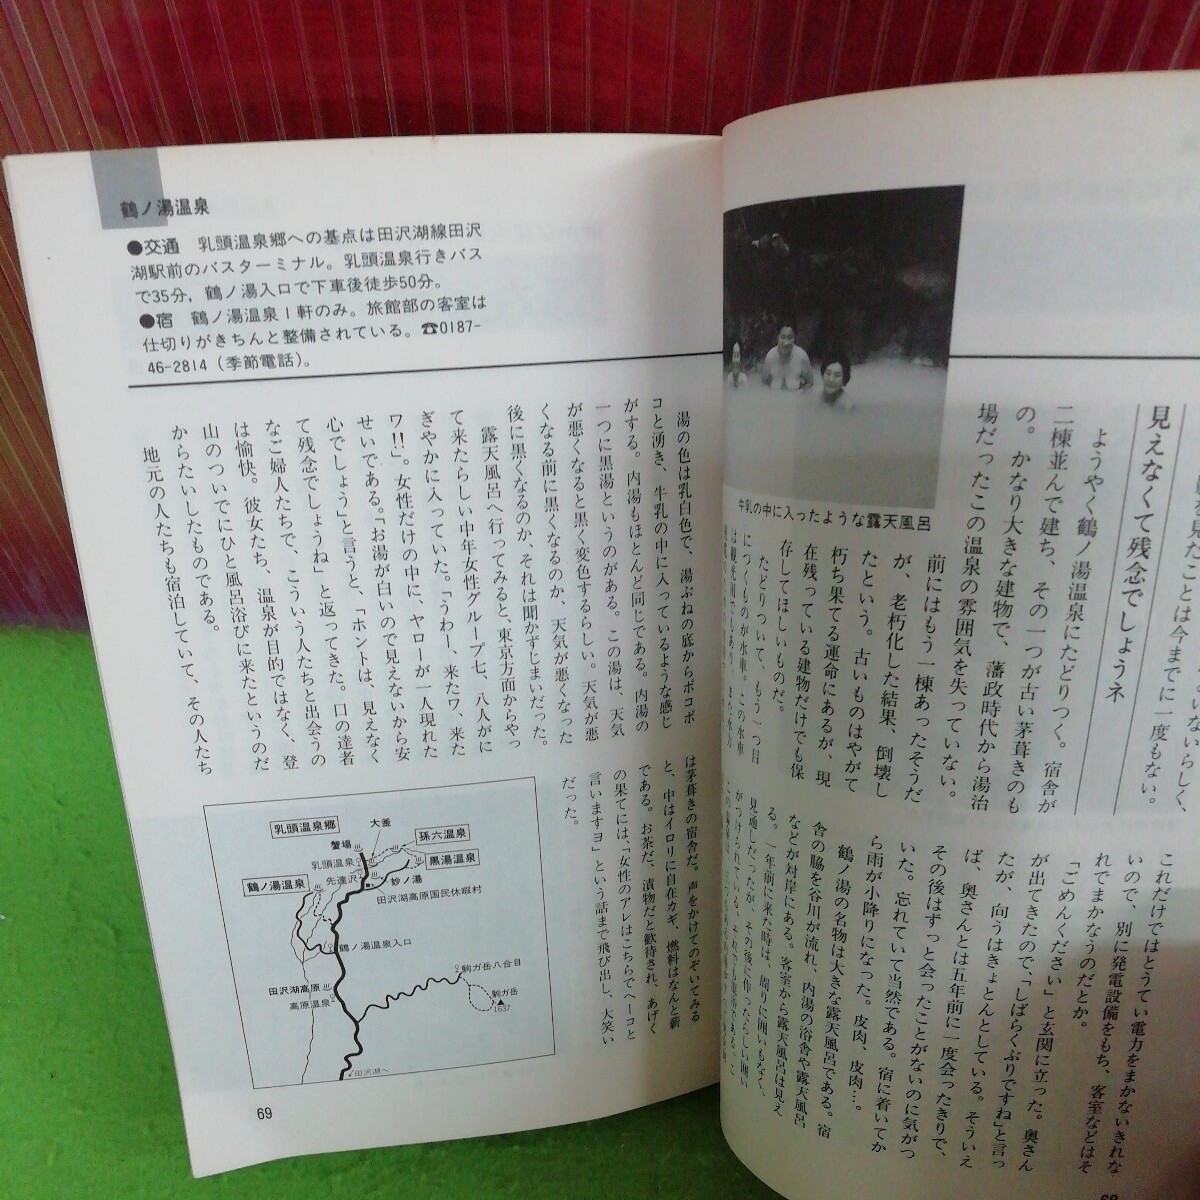 見えなくて残念でしょうネ
ようやく鶴ノ湯温泉にたどりつく。宿舎が
二棟並んで建ち、その一つが古い茅葺きのも
の。かなり大きな建物で、藩政時代から湯治
場だったこの温泉の雰囲気を失っていない。
前にはもう一棟あったそうだ
が、老朽化した結果、倒壊し
たという。古いものはやがて
朽ち果てる運命にあるが、現
在残っている建物だけでも保
存してほしいものだ。
たどりついて、もう一つ目
につくものが水車。この水車
牛乳の中に入ったような露天風呂
これだけではとうてい電力をまかないきれな
いので、別に発電設備をもち、客室などはそ
れでまかなうのだとか。
「ごめんください」と玄関に立った。奥さん
が出てきたので、「しばらくぶりですね」と言っ
たが、向うはきょとんとしている。そういえ
ば、奥さんとは五年前に一度会ったきりで、
その後はずっと会ったことがないのに気がつ
いた。忘れていて当然である。宿に着いてか
ら雨が小降りになった。皮肉、皮肉…。
鶴ノ湯の名物は大きな露天風呂である。宿
舎の脇を谷川が流れ、内湯の浴舎や露天風呂
などが対岸にある。客室から露天風呂は見え
る。一年前に来た時は、周りに囲いもなく、
見通しだったが、その後に作ったらしい囲い
がつけられている。それでも豪溶である。こ
鶴ノ湯温泉
●交通 乳頭温泉郷への基点は田沢湖線田沢
湖駅前のバスターミナル。乳頭温泉行きバス
で35分，鶴ノ湯入口で下車後徒歩50分。
●宿 鶴ノ湯温泉1軒のみ。旅館部の客室は
仕切りがきちんと整備されている。☎0187-
46-2814（季節電話）。
湯の色は乳白色で、湯ぶねの底からポコポ
コと湧き、牛乳の中に入っているような感じ
がする。内湯もほとんど同じである。内湯の
一つに黒湯というのがある。この湯は、天気
が悪くなると黒く変色するらしい。天気が悪
くなる前に黒くなるのか、天気が悪くなった
後に黒くなるのか、それは聞かずじまいだった。
露天風呂へ行ってみると、東京方面からやっ
て来たらしい中年女性グループ七、八人がに
ぎやかに入っていた。「うわー、来たワ、来た
ワ!!」。女性だけの中に、ヤローが一人現れた
せいである。「お湯が白いので見えないから安
心でしょう」と言うと、「ホントは、見えなく
て残念でしょうね」と返ってきた。口の達者
なご婦人たちで、こういう人たちと出会うの
は愉快。彼女たち、温泉が目的ではなく、登
山のついでにひと風呂浴びに来たというのだ
からたいしたものである。
地元の人たちも宿泊していて、その人たち
は茅葺きの宿舎だ。声をかけてのぞいてみる
と、中はイロリに自在カギ、燃料はなんと薪
である。お茶だ、漬物だと歓待され、あげく
の果てには、「女性のアレはこちらでヘーコと
言いますヨ」という話まで飛び出し、大笑い
だった。
乳頭温泉郷
大釜
孫六温泉
蟹場
乳頭温泉
黒湯温泉
先達沢
妙ノ湯
鶴ノ湯温泉
田沢湖高原国民休暇村
鶴ノ湯温泉入口
駒ガ岳八合目
田沢湖高原
高原温泉
駒ガ岳
1637
田沢湖へ
69